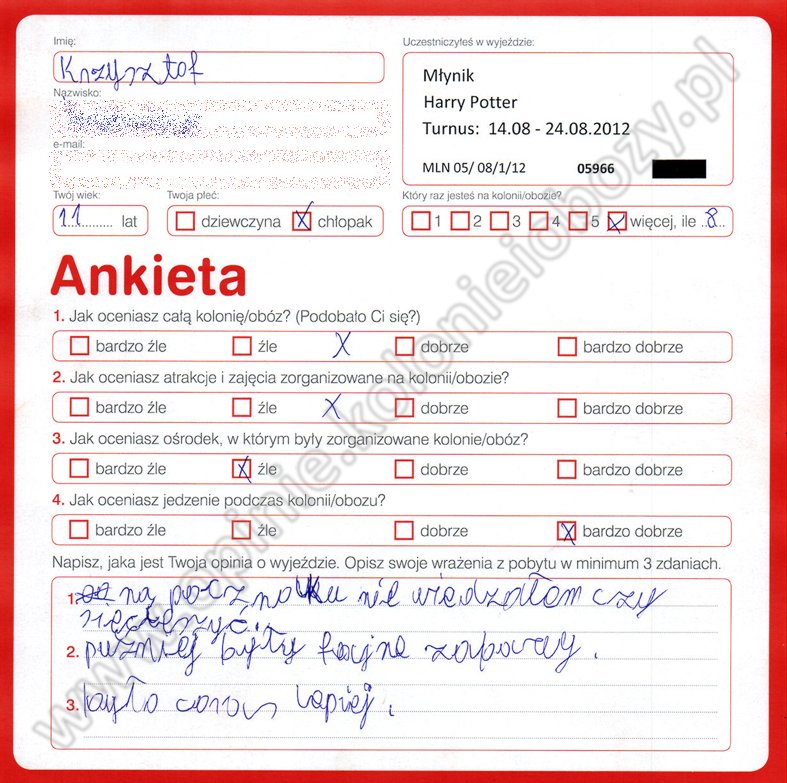 Imię:
Krzysztof
Nazwisko:
e-mail:
Uczestniczyłeś w wyjeździe:
Młynik
Harry Potter
Turnus: 14.08 - 24.08.2012
MLN 05/ 08/1/12 05966
Twój wiek:
11 lat
Twoja płeć:
dziewczyna X chłopak
Który raz jesteś na kolonii/obozie?
1 2 3 4 5 X więcej, ile ..8..
Ankieta
1. Jak oceniasz całą kolonię/obóz? (Podobało Ci się?)
bardzo źle źle X dobrze bardzo dobrze
2. Jak oceniasz atrakcje i zajęcia zorganizowane na kolonii/obozie?
bardzo źle źle X dobrze bardzo dobrze
3. Jak oceniasz ośrodek, w którym były zorganizowane kolonie/obóz?
bardzo źle X źle dobrze bardzo dobrze
4. Jak oceniasz jedzenie podczas kolonii/obozu?
bardzo źle źle dobrze X bardzo dobrze
Napisz, jaka jest Twoja opinia o wyjeździe. Opisz swoje wrażenia z pobytu w minimum 3 zdaniach.
1. na pocznotku nie wiedzałem czy
sięcieszyć.
2. puzniej były fajne zabawy.
3. było coros lepiej.
www.opinie.kolonieiobozy.pl